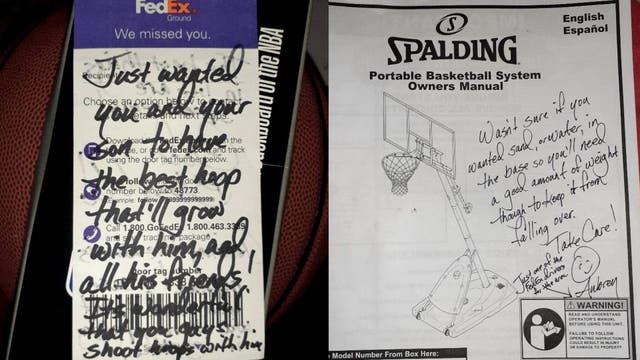 FedEx
Ground
We missed you.
Just wanted
you and your
son to have
the best hoop
that'll grow
with him, and
all his friends!
It's wonderful
that you guys
shoot hoops with him
Choose an option below to
using the door tag number below.
48773
Call 1.800.GoFedEx 1.800.463.33
door tag number
of the NBA
English
Español
SPALDING
Portable Basketball System
Owners Manual
Wasn't sure if you
wanted sand, or water, in
the base so you'll need
a good amount of weight
though to keep it from
falling over.
Take Care!
Just one of the
FedEx drivers
for the area
Aubrey
WARNING!
READ AND UNDERSTAND
OPERATOR'S MANUAL
BEFORE USING THIS UNIT.
FAILURE TO FOLLOW
OPERATING INSTRUCTIONS
COULD RESULT IN INJURY
OR DAMAGE TO PROPERTY
Model Number From Box Here: